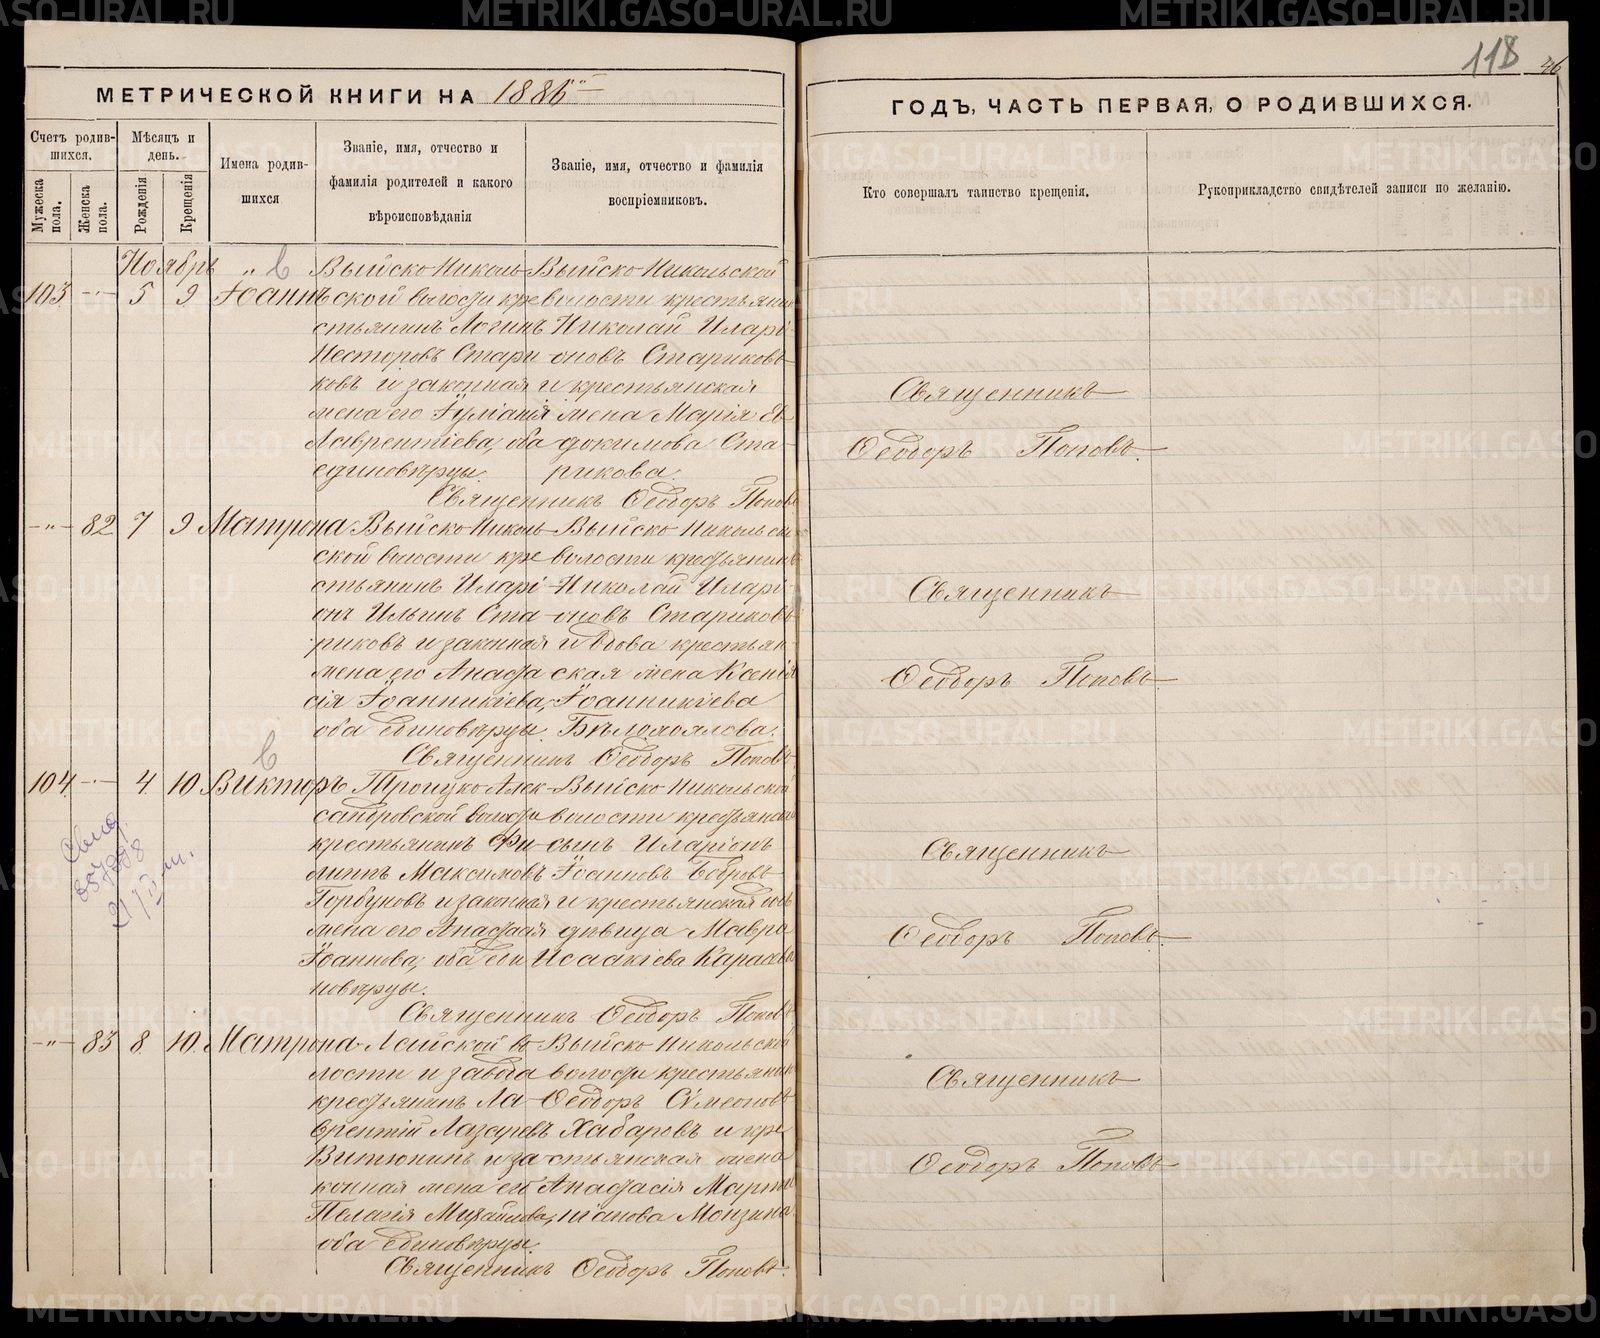 118
46
МЕТРИЧЕСКОЙ КНИГИ НА 1886
ГОДЪ, ЧАСТЬ ПЕРВАЯ, О РОДИВШИХСЯ.
Счетъ родив-
шихся.
Мужеска пола.
Женска пола.
Мѣсяцъ и
день.
Рожденія
Крещенія
Имена родив-
шихся
Званіе, имя, отчество и
фамилія родителей и какого
вѣроисповѣданія
Званіе, имя, отчество и фамилія
воспріемниковъ.
Кто совершалъ таинство крещенія.
Рукоприкладство свидѣтелей записи по желанію.
Ноябрь
103 5 9 Іоаннъ
Выйско-Николь-
ской волости кре
стьянинъ Логинъ
Несторовъ Стари
ковъ и законная
жена его Іуліанія
Лаврентіева, оба
единовѣрцы.
Выйско-Никольской
волости крестьянинъ
Николай Иларі-
оновъ Стариковъ
и крестьянская
жена Марія Ев
докимова Ста-
рикова.
Священникъ Ѳеодоръ Поповъ
Священникъ
Ѳеодоръ Поповъ.
82 7 9 Матрона
Выйско-Николь-
ской волости кре
стьянинъ Иларі-
онъ Ильинъ Ста
риковъ и законная
жена его Анаста
сія Іоанникіева,
оба единовѣрцы.
Выйско-Никольской
волости крестьянинъ
Николай Иларі-
оновъ Стариковъ
и вдова крестьян
ская жена Ксенія
Іоанникіева
Бѣломоялова.
Священникъ Ѳеодоръ Поповъ
Священникъ
Ѳеодоръ Поповъ.
104 4 10 Викторъ
Троицко-Алек-
сандровской волости
крестьянинъ Фи-
липъ Максимовъ
Горбуновъ и законная
жена его Анастасія
Іоаннова, оба еди
новѣрцы.
Выйско-Никольской
волости крестьянскій
сынъ Иларіонъ
Іоанновъ Бобровъ
и крестьянская дочь
дѣвица Мавра
Исаакіева Карасева
Священникъ Ѳеодоръ Поповъ
Священникъ
Ѳеодоръ Поповъ.
83 8 10 Матрона
Лайской во
лости и завода
крестьянинъ Ла-
врентій Лазаревъ
Витюнинъ и за
конная жена его
Пелагія Михайлова,
оба единовѣрцы.
Выйско-Никольской
волости крестьянинъ
Ѳеодоръ Сѵмеоновъ
Хабаровъ и кре
стьянская жена
Анастасія Марти
ніанова Монзина.
Священникъ Ѳеодоръ Поповъ.
Священникъ
Ѳеодоръ Поповъ
METRIKI.GASO-URAL.RU